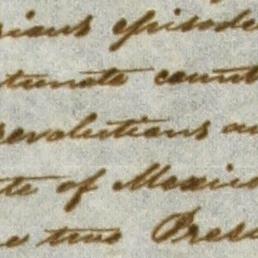 rious episode
tunate count
revolutions a
te of Mexico
e two Pres